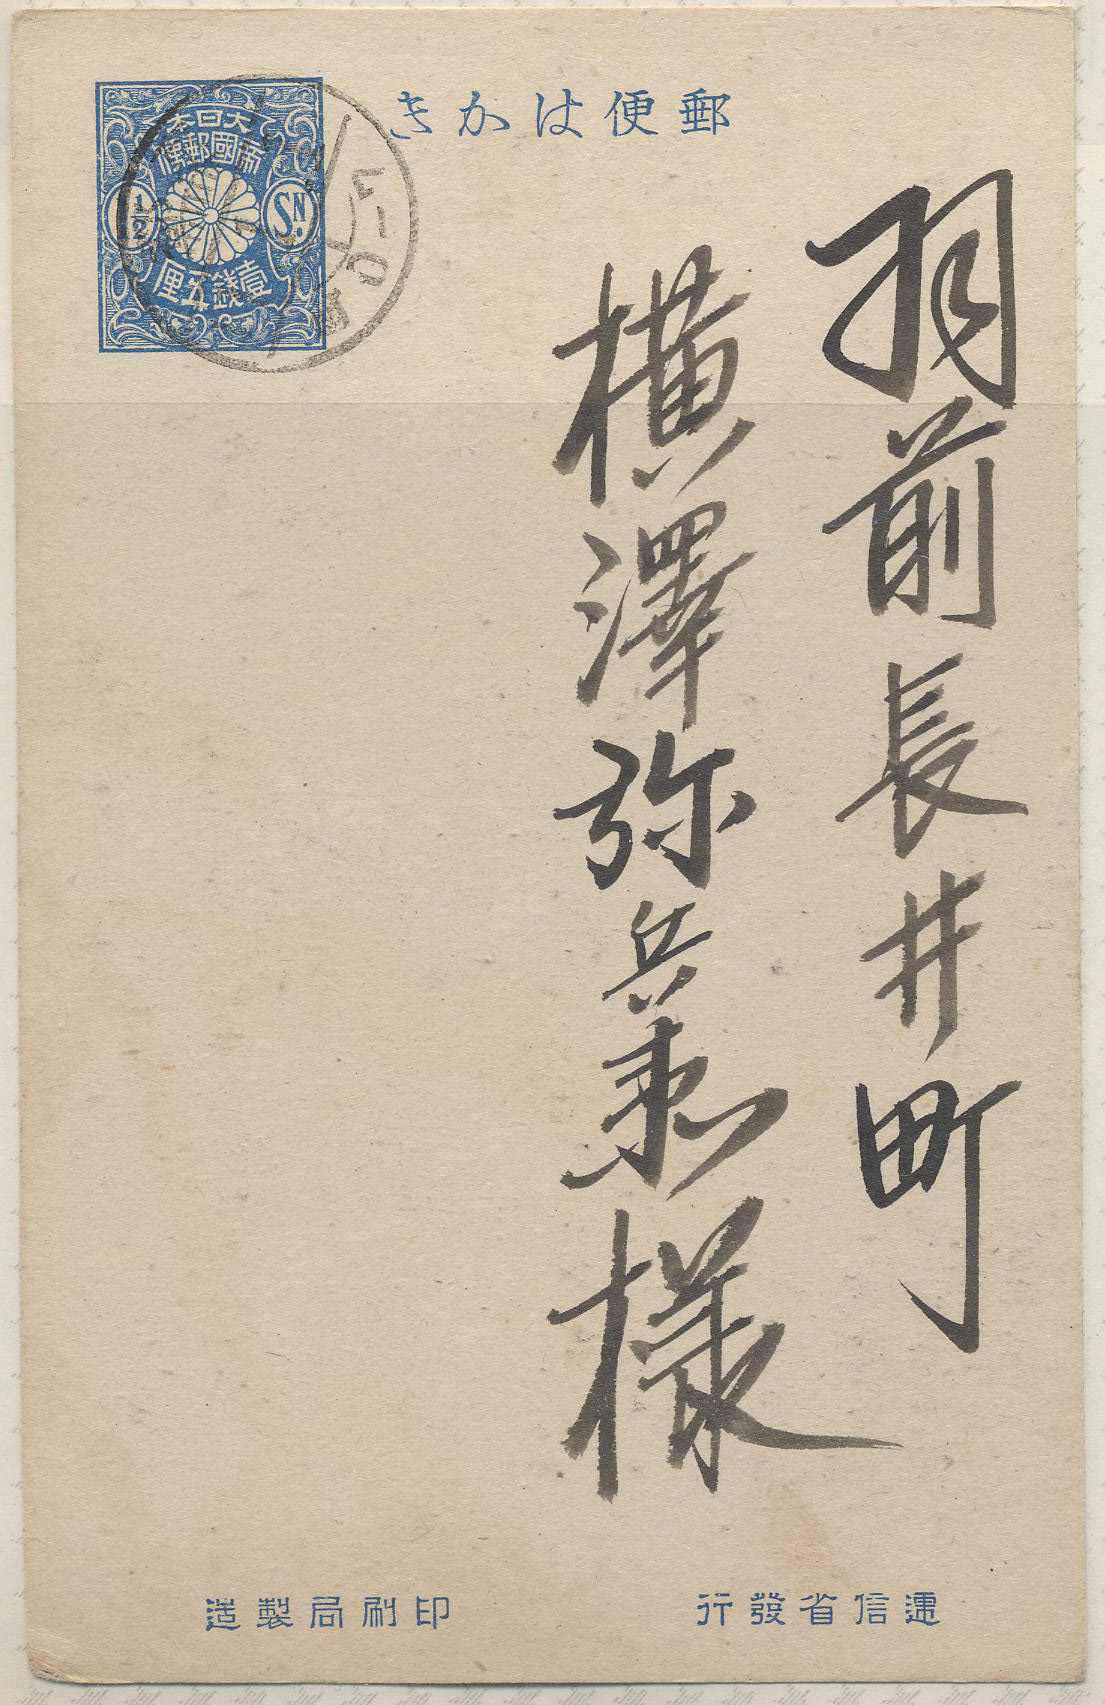 郵便はかき
大日本
帝國郵便
1/2
SN.
壹錢五厘
羽前長井町
横澤弥兵衛様
遞信省發行
印刷局製造